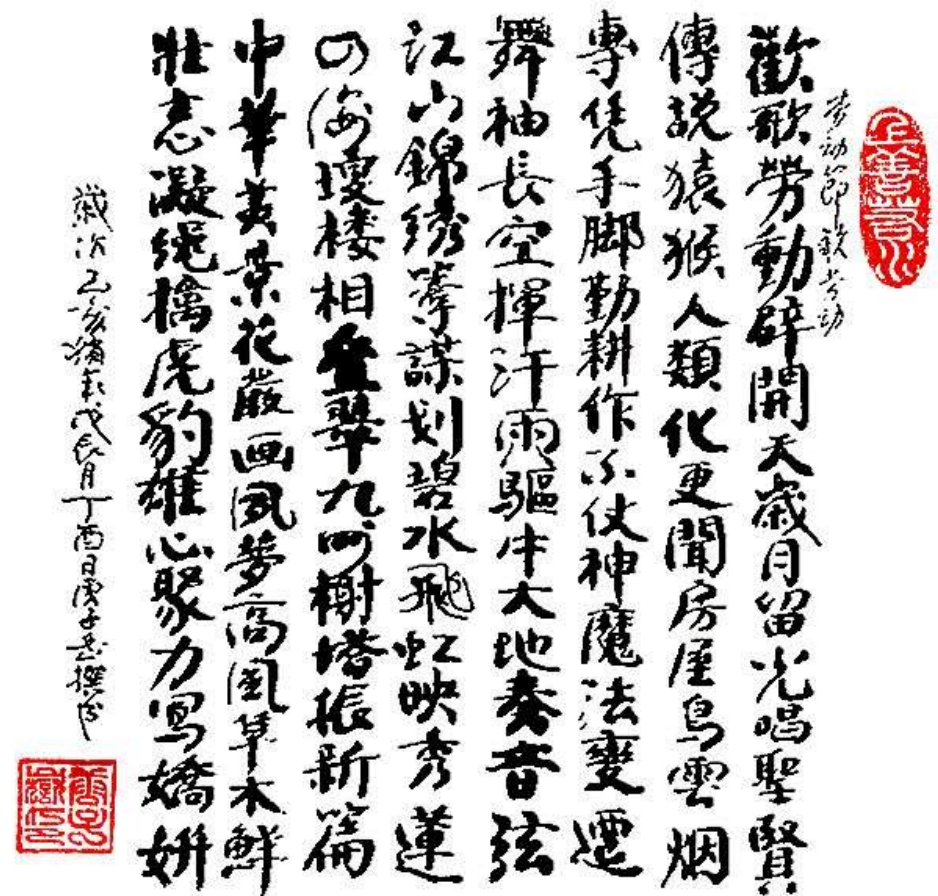 上善若水
歡歌勞動辟開天歲月留光唱聖賢
傳説猿猴人類化更聞房屋鳥雲烟
專凭手脚勤耕作不仗神魔法變遷
舞袖長空揮汗雨驅牛大地奏音弦
江山錦綉籌謀划碧水飛虹映秀蓮
四海瓊楼相叠翠九州榭塔振新篇
中華美景花画夢高風草木鮮
壯志凝绳擒虎豹雄心聚力寫嬌妍
歲次己亥猪年戊辰月丁酉日撰书